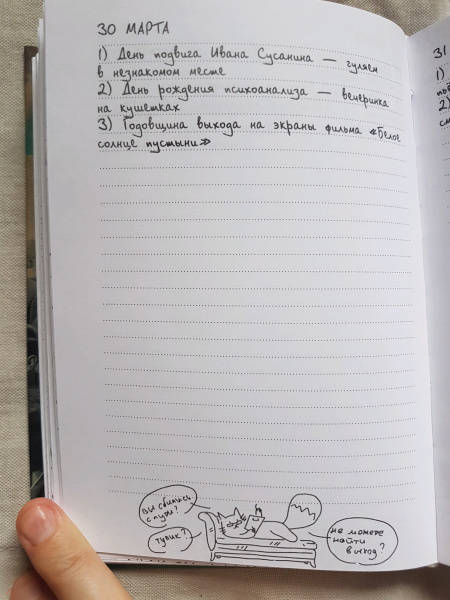 30 МАРТА
1) День подвига Ивана Сусанина — гуляем
в незнакомом месте
2) День рождения психоанализа — вечеринка
на кушетках
3) Годовщина выхода на экраны фильма «Белое
солнце пустыни»
31
1)
2)
Вы сбились
с пути?
тупик?
не можете
найти
выход?